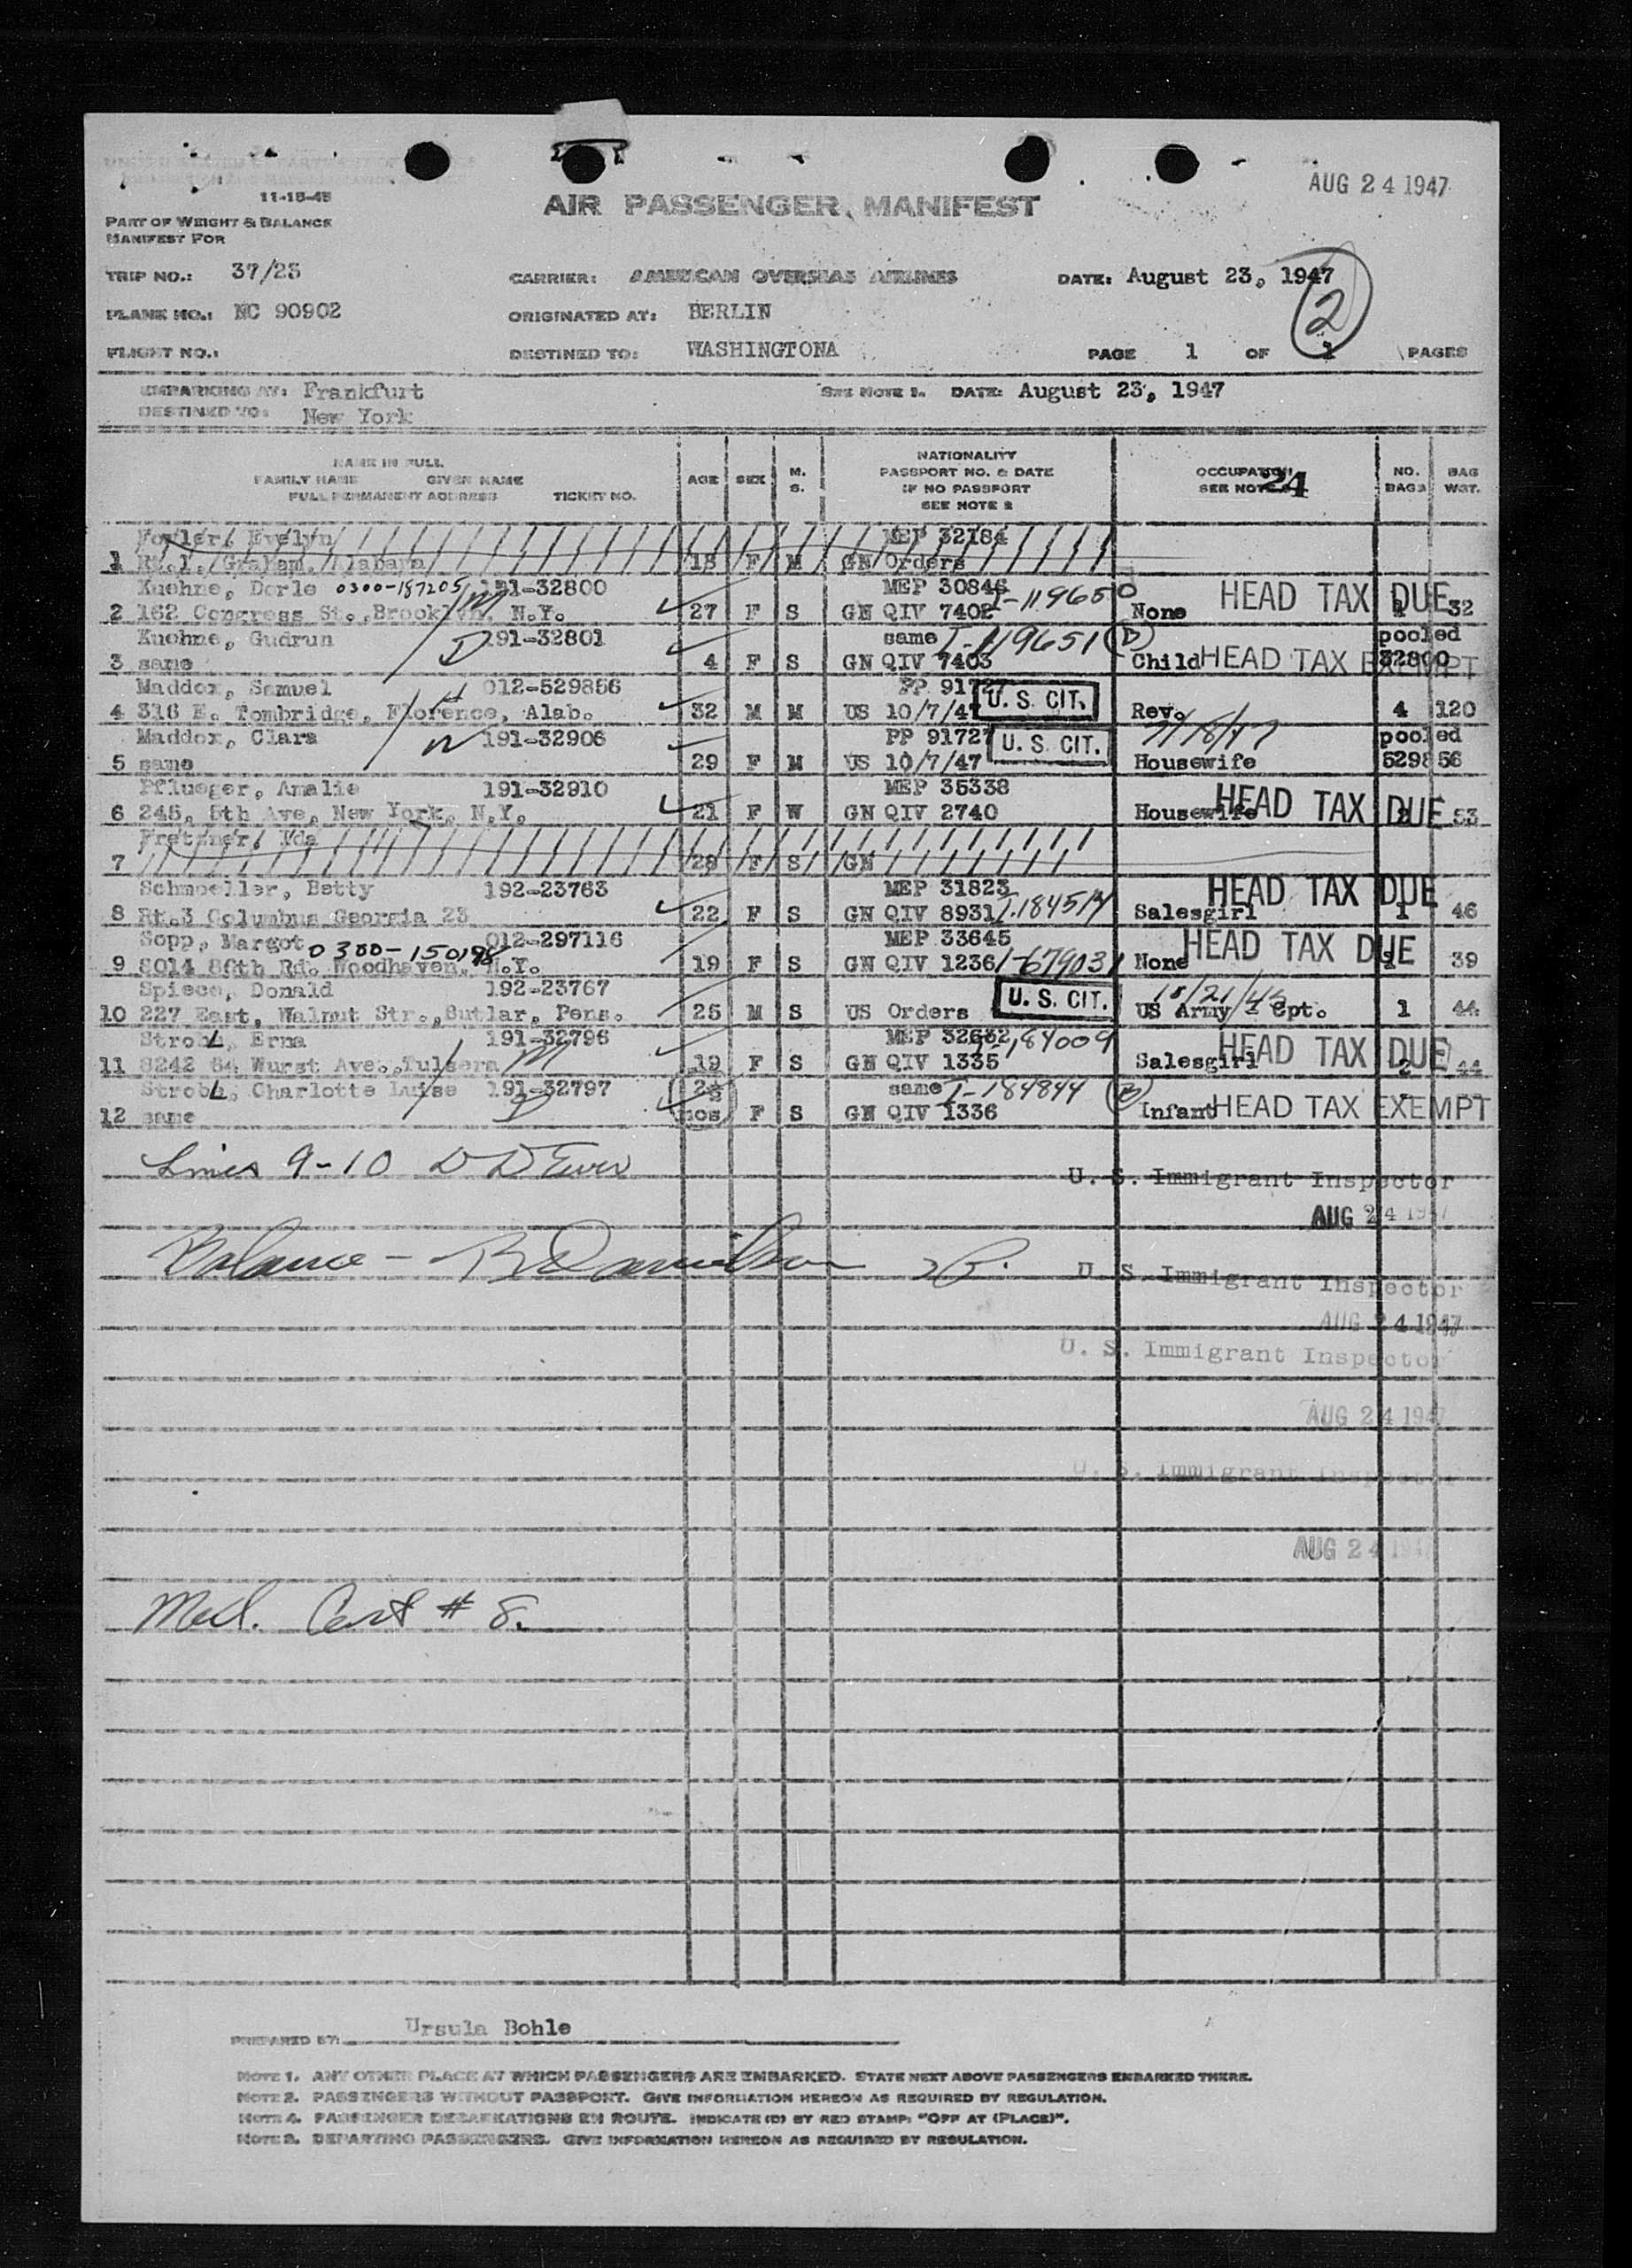 AUG 24 1947
11-15-45
AIR PASSENGER MANIFEST
PART OF WEIGHT & BALANCE
MANIFEST FOR
TRIP NO.: 37/25 CARRIER: AMERICAN OVERSEAS AIRLINES DATE: August 23, 1947
2
PLANE NO.: NC 90902 ORIGINATED AT: BERLIN
FLIGHT NO.: DESTINED TO: WASHINGTONA PAGE 1 OF 1 PAGES
EMBARKING AT: Frankfurt SEE NOTE 1. DATE: August 23, 1947
DESTINED TO: New York
NAME IN FULL
FAMILY NAME GIVEN NAME
FULL PERMANENT ADDRESS TICKET NO.
AGE SEX M. S.
NATIONALITY
PASSPORT NO. & DATE
IF NO PASSPORT
SEE NOTE 2
OCCUPATION
SEE NOTE 24
NO. BAGS BAG WGT.
Fowler, Evelyn MEP 32184
1 Rt.1, Graham, Alabama 18 F M GN Orders
Kuehne, Dorle 0300-187205 191-32800 MEP 30846 I-119650 HEAD TAX DUE
2 162 Congress St., Brooklyn, N.Y. 27 F S GN QIV 7402 None 32
Kuehne, Gudrun 191-32801 same I-119651 (B) pooled
3 same 4 F S GN QIV 7403 Child HEAD TAX EXEMPT 32800
Maddox, Samuel 012-529856 PP 91727 U. S. CIT.
4 316 E. Tombridge, Florence, Alab. 32 M M US 10/7/47 Rev. 4 120
Maddox, Clara 191-32906 PP 91727 U. S. CIT. pooled
5 same 29 F M US 10/7/47 Housewife 529856
Pflueger, Amalie 191-32910 MEP 35338 HEAD TAX DUE
6 245, 5th Ave, New York, N.Y. 21 F W GN QIV 2740 Housewife 2 53
Fretzner, Ida
7 28 F S GN
Schmoeller, Betty 192-23763 MEP 31823 HEAD TAX DUE
8 Rt.3 Columbus Georgia 23 22 F S GN QIV 8931 Salesgirl 1 46
Sopp, Margot 0300-150198 012-297116 MEP 33645 HEAD TAX DUE
9 8014 88th Rd. Woodhaven, N.Y. 19 F S GN QIV 1236 I-679031 None 39
Spiece, Donald 192-23767 U. S. CIT.
10 227 East, Walnut Str., Butlar, Pens. 25 M S US Orders US Army Cpt. 1 44
Strobl, Erna 191-32796 MEP 32632 I-184009 HEAD TAX DUE
11 8242 64 Wurst Ave., Tulsera 19 F S GN QIV 1335 Salesgirl 2 44
Strobl, Charlotte Luise 191-32797 same I-184844 (B)
12 same mos F S GN QIV 1336 Infant HEAD TAX EXEMPT
Lines 9-10
U. S. Immigrant Inspector
AUG 24 1947
Balance -
U. S. Immigrant Inspector
AUG 24 1947
U. S. Immigrant Inspector
AUG 24 1947
U. S. Immigrant Inspector
AUG 24 1947
Med. Cert # 8.
PREPARED BY: Ursula Bohle
NOTE 1. ANY OTHER PLACE AT WHICH PASSENGERS ARE EMBARKED. STATE NEXT ABOVE PASSENGERS EMBARKED THERE.
NOTE 2. PASSENGERS WITHOUT PASSPORT. GIVE INFORMATION HEREON AS REQUIRED BY REGULATION.
NOTE 4. PASSENGER DEBARKATIONS EN ROUTE. INDICATE (D) BY RED STAMP: "OFF AT (PLACE)".
NOTE 3. DEPARTING PASSENGERS. GIVE INFORMATION HEREON AS REQUIRED BY REGULATION.